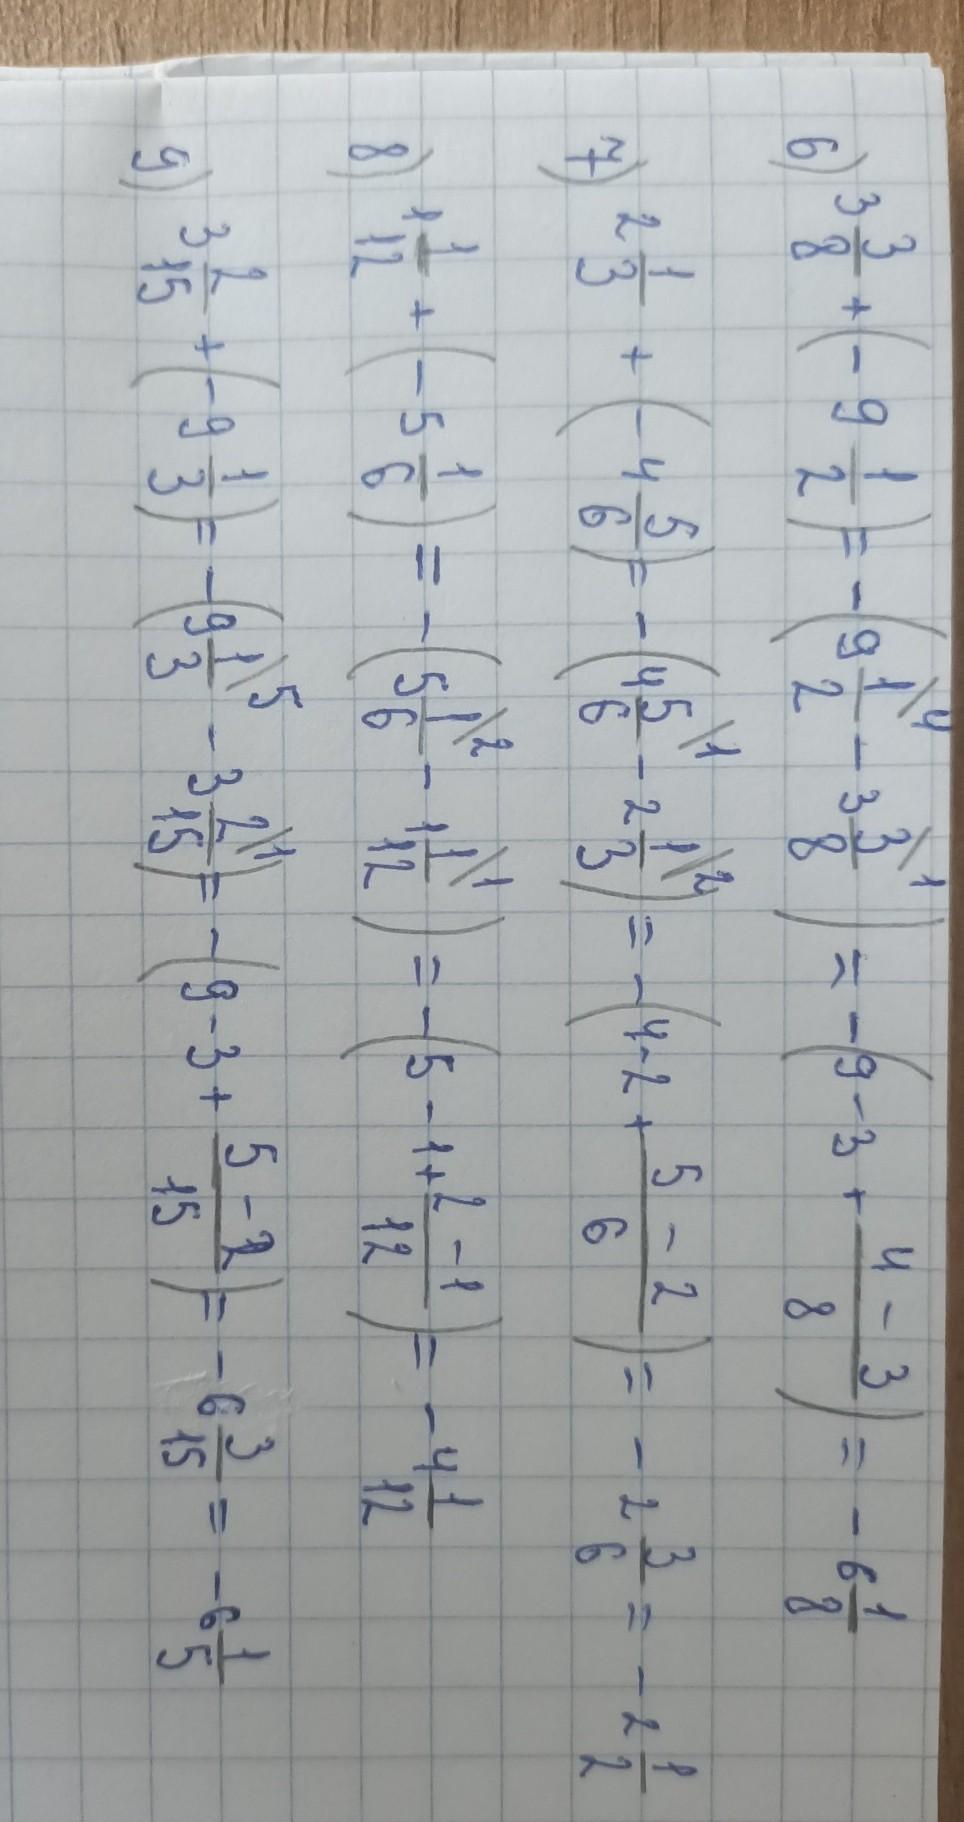 6) 3 3/8 + (- 9 1/2) = - (9 1/2 /4 - 3 3/8 /1) = - (9 - 3 + (4 - 3)/8) = - 6 1/8
7) 2 1/3 + (- 4 5/6) = - (4 5/6 /1 - 2 1/3 /2) = - (4 - 2 + (5 - 2)/6) = - 2 3/6 = - 2 1/2
8) 1 1/12 + (- 5 1/6) = - (5 1/6 /2 - 1 1/12 /1) = - (5 - 1 + (2 - 1)/12) = - 4 1/12
9) 3 2/15 + (- 9 1/3) = - (9 1/3 /5 - 3 2/15 /1) = - (9 - 3 + (5 - 2)/15) = - 6 3/15 = - 6 1/5